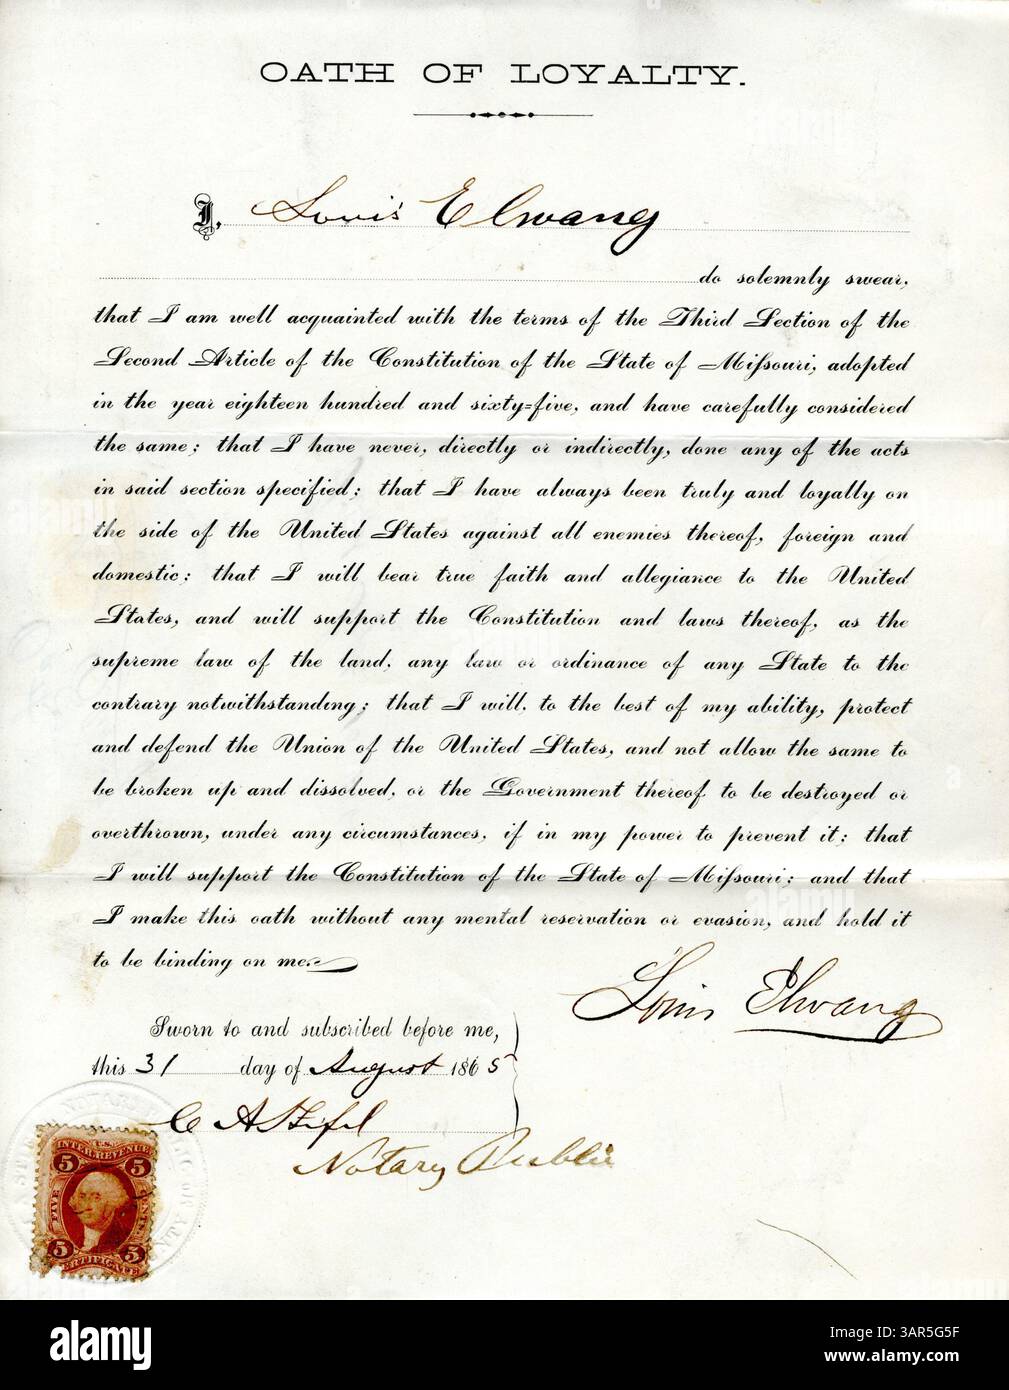 OATH OF LOYALTY.
I, Louis Elwang
do solemnly swear,
that I am well acquainted with the terms of the Third Section of the
Second Article of the Constitution of the State of Missouri, adopted
in the year eighteen hundred and sixty-five, and have carefully considered
the same; that I have never, directly or indirectly, done any of the acts
in said section specified; that I have always been truly and loyally on
the side of the United States against all enemies thereof, foreign and
domestic; that I will bear true faith and allegiance to the United
States, and will support the Constitution and laws thereof, as the
supreme law of the land, any law or ordinance of any State to the
contrary notwithstanding; that I will, to the best of my ability, protect
and defend the Union of the United States, and not allow the same to
be broken up and dissolved, or the Government thereof to be destroyed or
overthrown, under any circumstances, if in my power to prevent it; that
I will support the Constitution of the State of Missouri; and that
I make this oath without any mental reservation or evasion, and hold it
to be binding on me.
Louis Elwang
Sworn to and subscribed before me,
this 31 day of August 1865
C A Stifel
Notary Public
U.S.
INTER. REVENUE
5 5
FIVE CENTS
5 5
CERTIFICATE
alamy
Image ID: 3AR5G5F
www.alamy.com